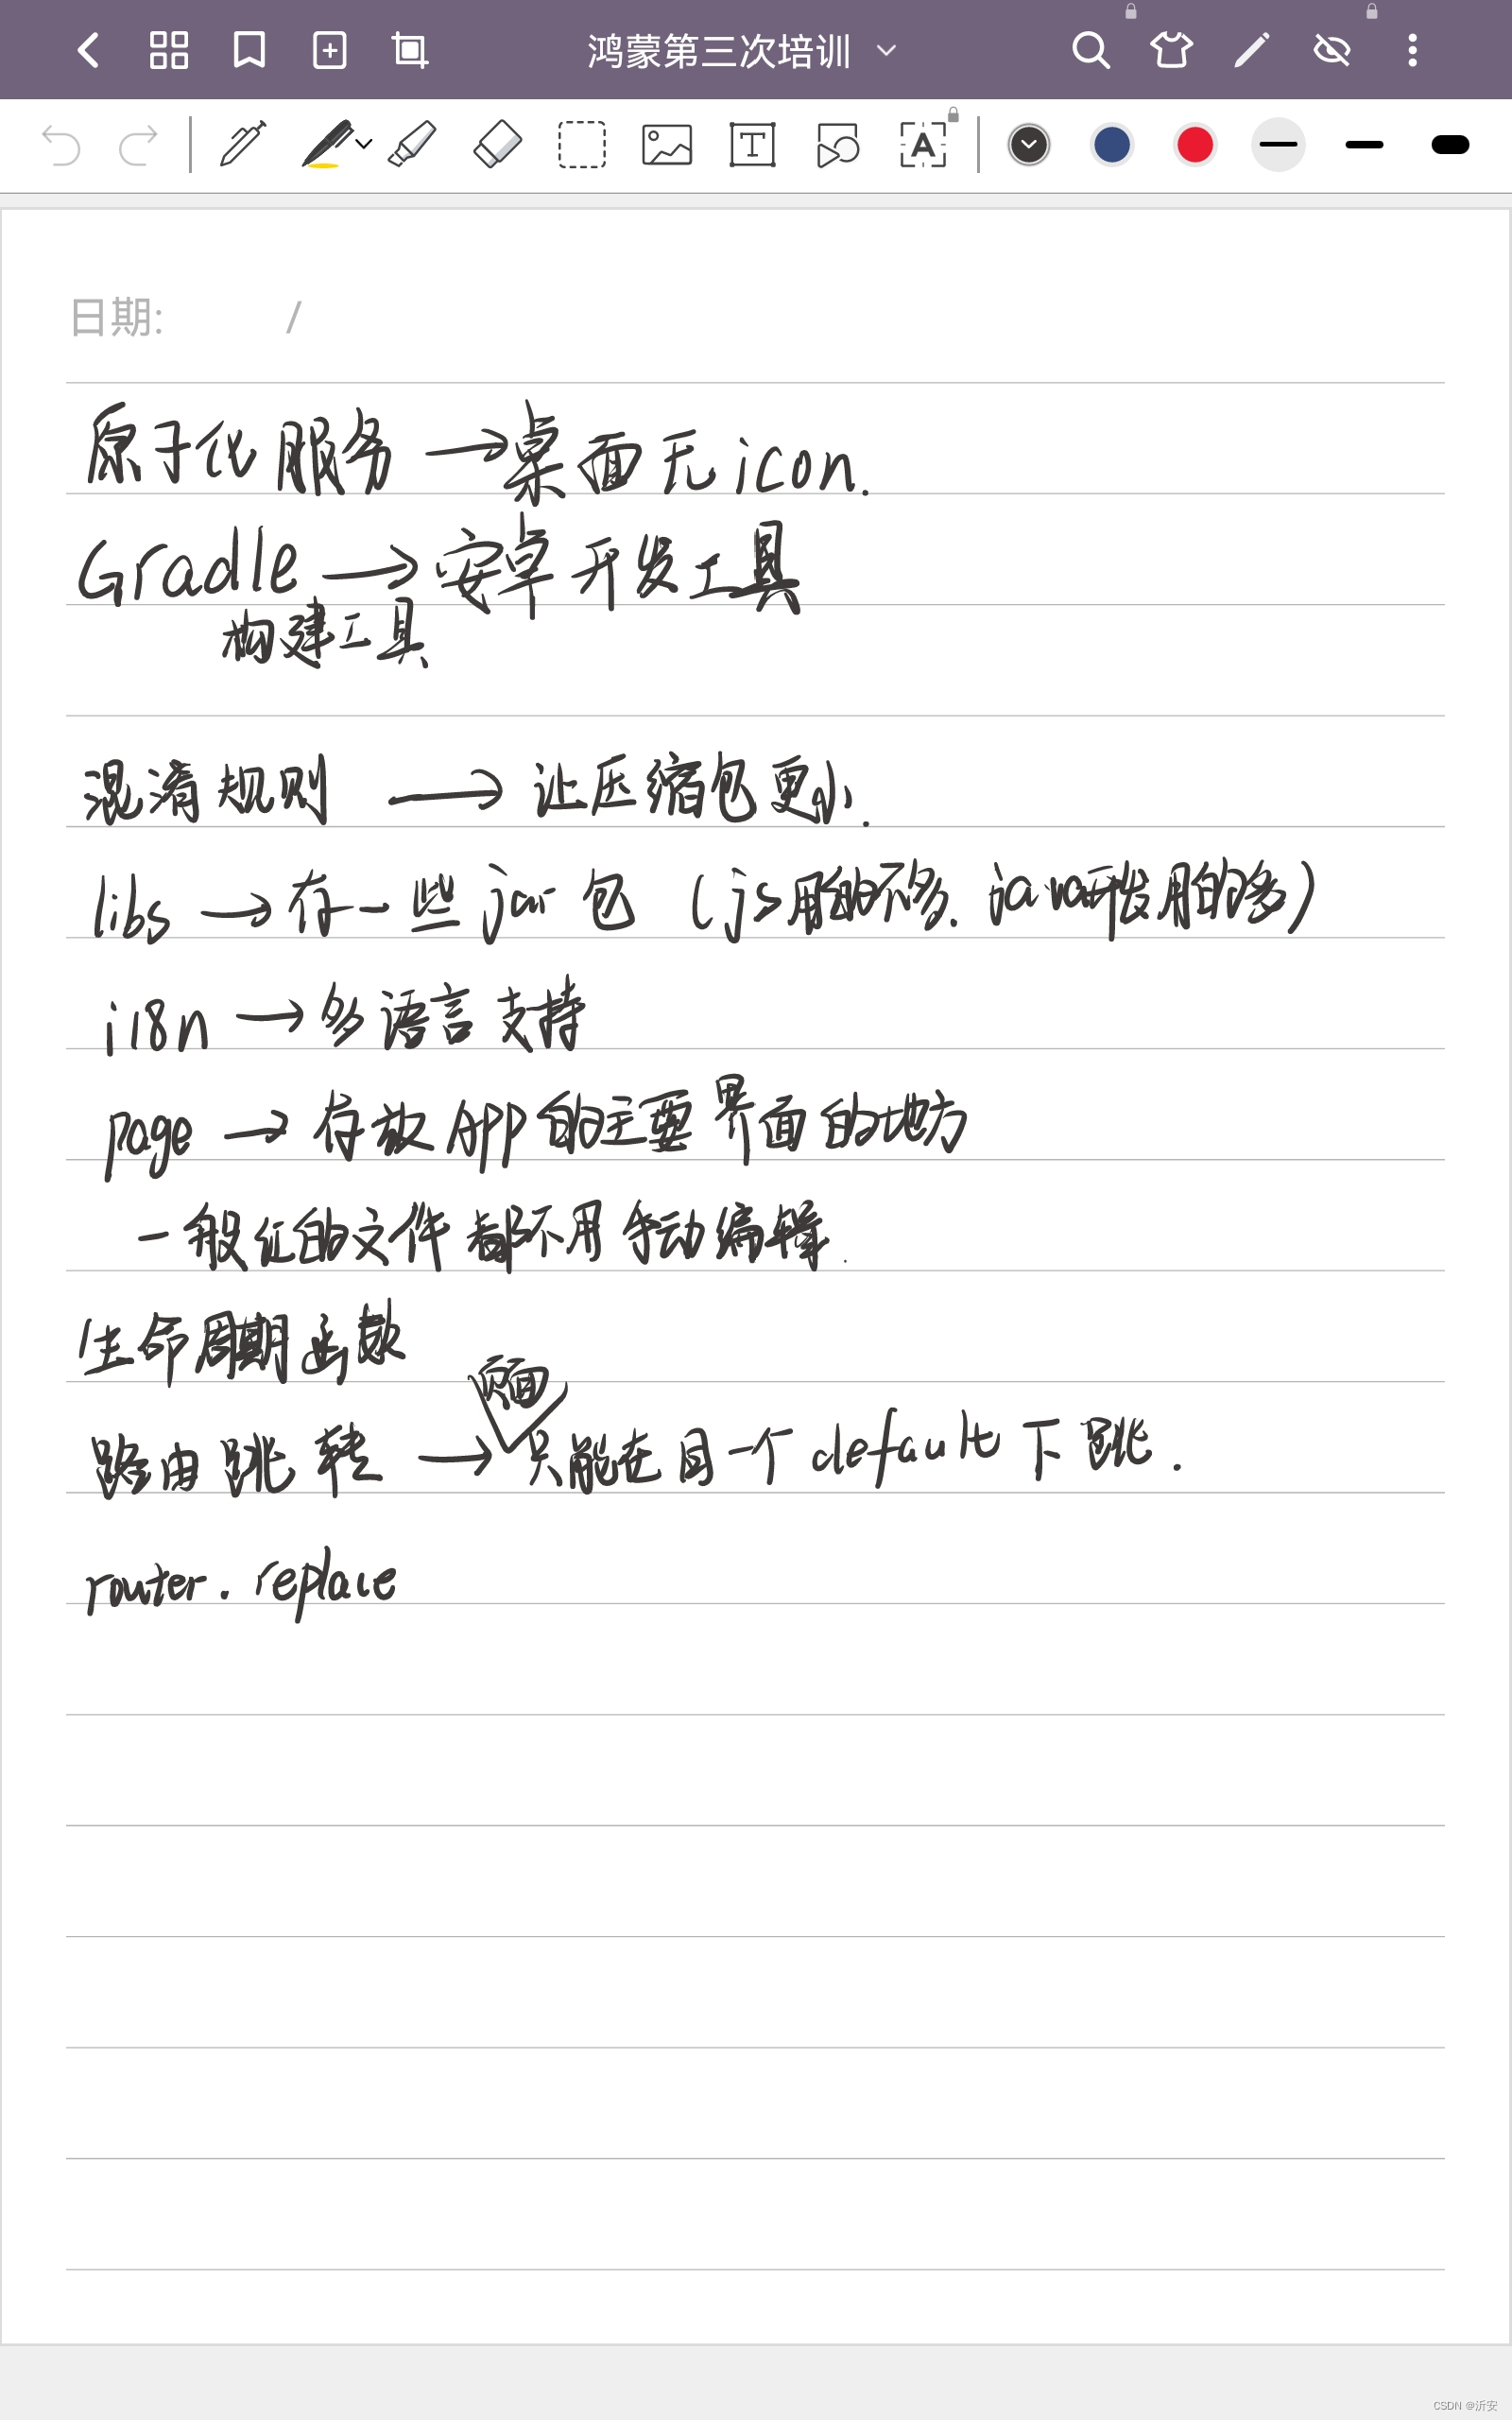 鸿蒙第三次培训
日期: /
原子化服务→桌面无icon.
Gradle→安卓开发工具
构建工具
混淆规则→让压缩包更小.
libs→存一些jar包(js用的不多.java开发用的多)
i18n→多语言支持
page→存放APP的主要界面的地方
一般让的文件都不用手动编择.
生命周期函数
页面
路由跳转→只能在同一个default下跳.
router.replace
CSDN @沂安